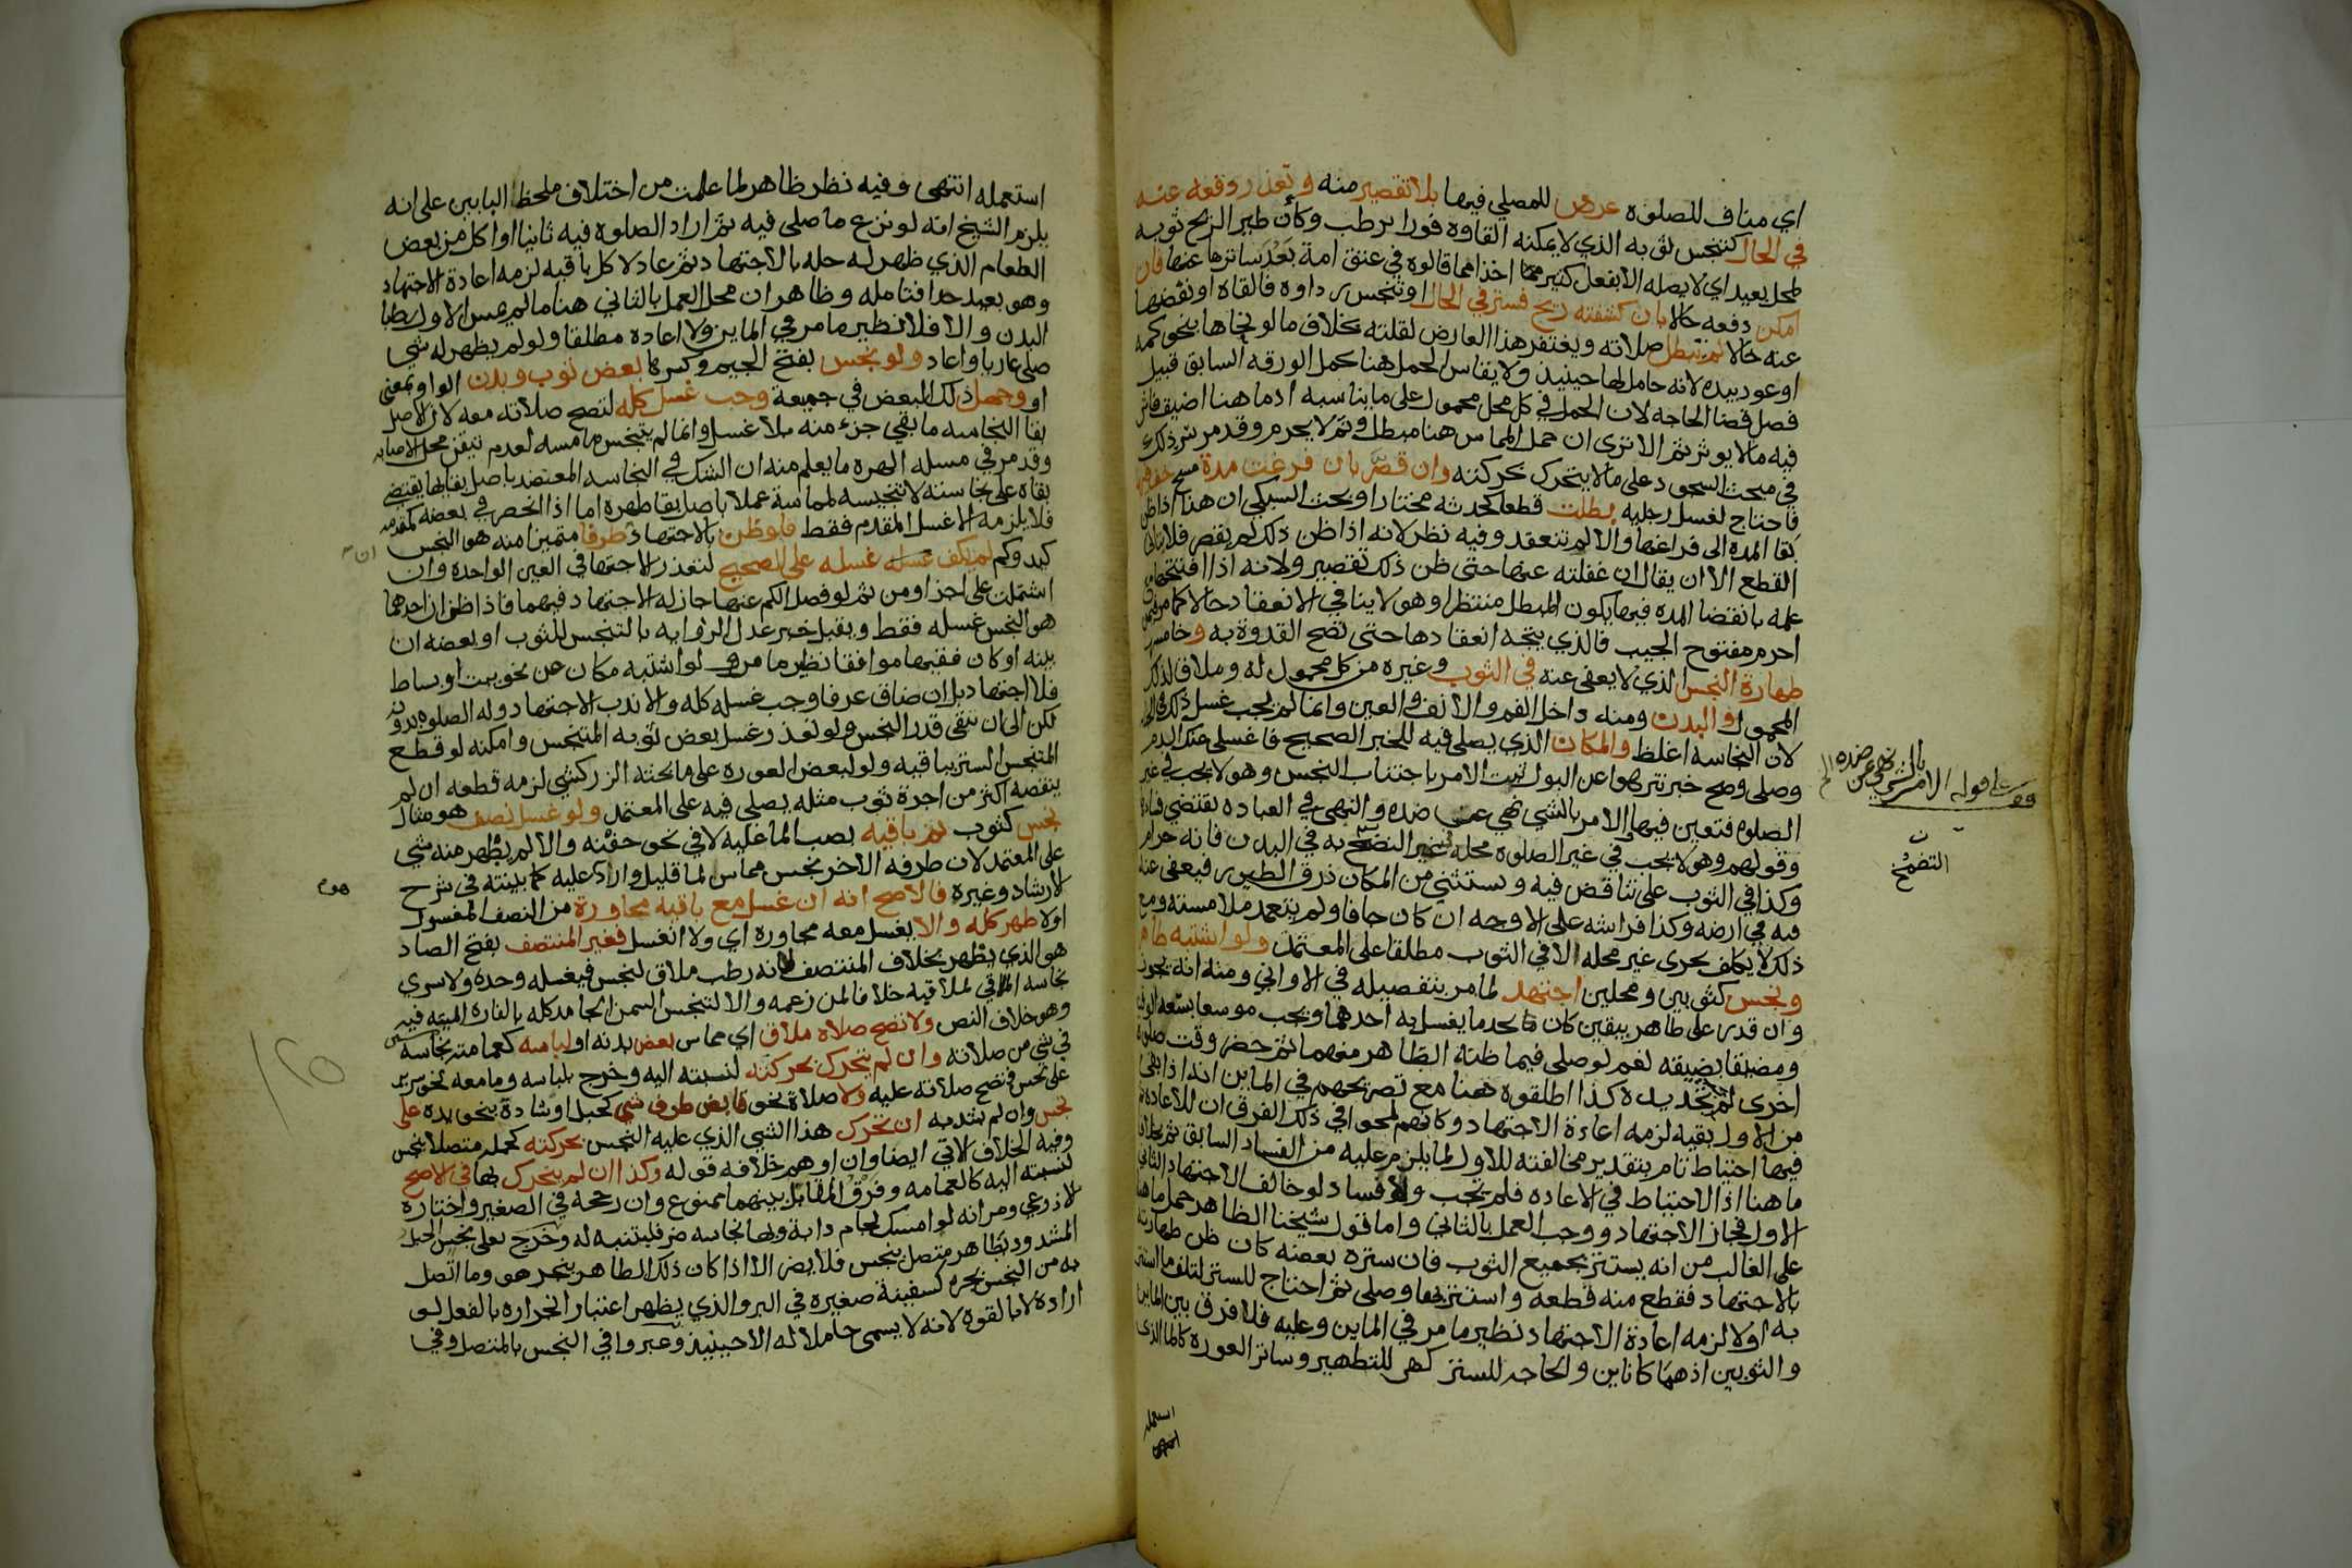 اي مناف للصلوة عرض للمصلي فيها بلا تقصير منه وتعذر دفعه عنه
في الحال كتنجس ثوبه الذي لا يمكنه القاوه فورا برطب وكأن طير الريح ثوبه
لمحل بعيد اي لا يصله الا بفعل كثير اخذا مما قالوه في عتق امة بَعُدَ ساترها عنها فان
امكن دفعه حالا بان كشفته ريح فستر في الحال او تنجس رداوه فالقاه او نفضها
عنه حالا لم تبطل صلاته ويغتفر هذا العارض لقلته بخلاف ما لو نحاها بنحو كمه
او عود بيده لانه حامل لها حينيذ ولا يقاس الحمل هنا بحمل الورقه السابق قبيل
فصل قضا الحاجه لان الحمل في كل محل محمول على ما يناسبه اذ ما هنا اضيق فاثر
فيه ما لا يوثر ثم الا ترى ان حمل المماس هنا مبطل وثم لا يحرم وقد مر نير ذلك
في مبحث السجود على ما لا يتحرك بحركته وان قصَّر بان فرغت مدة مسح خف فيها
فاحتاج لغسل رجليه بطلت قطعا كحدثه مختارا وبحث السبكي ان هذا اذا ظن
بقا المده الى فراغها والا لم تنعقد وفيه نظر لانه اذا ظن ذلك لم يقصر فلا يتاتى
القطع الا ان يقال ان غفلته عنها حتى ظن ذلك تقصير ولانه اذا افتتحها مع
علمه بانقضا المده فيها يكون المبطل منتظرا وهو لا ينافي الانعقاد حالا كما مر فيمن
احرم مفتوح الجيب فالذي يتجه انعقادها حتى تصح القدوة به وخامسها
طهارة النجس الذي لا يعفى عنه في الثوب وغيره من كل محمول له وملاق لذلك
المحمول والبدن ومنه داخل الفم والانف والعين وانما لم يجب غسل ذلك في الجنابه
لان النجاسه اغلظ والمكان الذي يصلي فيه للخبر الصحيح فاغسلي عنك الدم
وصلي وصح خبر تنزهوا عن البول ثبت الامر باجتناب النجس وهو لا يجب في غير
الصلوه فتعين فيها والامر بالشي نهي عن ضده والنهي في العباده يقتضي فسادها
وقولهم وهو لا يجب في غير الصلوه محله في غير التضمخ به في البدن فانه حرام
وكذا في الثوب على تناقض فيه ويستثنى من المكان ذرق الطيور فيعفى عنه
فيه في ارضه وكذا فراشه على الاوجه ان كان جافا ولم يتعمد ملامسته ومع
ذلك لا يكلف تحرى غير محله الا في الثوب مطلقا على المعتمد ولو اشتبه طاهر
ونجس كثوبين ومحلين اجتهد لما مر بتفصيله في الاواني ومنه انه يجوز
وان قدر على طاهر بيقين كان ما يغسل به احدهما ويجب موسعا بسعه الوقت
ومضيقا بضيقه نعم لو صلى فيما ظنه الطاهر منهما ثم حضر وقت صلوة
اخرى لم يجب تجديده كذا اطلقوه هنا مع تصريحهم في الماين انه اذا بقي
من الاول بقيه لزمه اعادة الاجتهاد وكانهم لمحوا في ذلك الفرق ان للاعادة ثم
فيها احتياط تام بتقدير مخالفته للاول لما يلزم عليه من الفساد السابق ثم بخلاف
ما هنا اذ الاحتياط في الاعاده فلم يجب ولا فساد لو خالف الاجتهاد الثاني
الاول فجاز الاجتهاد ووجب العمل بالثاني واما قول شيخنا الظاهر حمل ما هنا
على الغالب من انه يستتر بجميع الثوب فان ستره بعضه كان ظن طهارته
بالاجتهاد فقطع منه قطعه واستتر بها وصلى ثم احتاج للستر لتلف ما استتر
به اولا لزمه اعادة الاجتهاد نظير ما مر في الماين وعليه فلا فرق بين الماين
والثوبين اذ هما كانايين والحاجه للستر كهي للتطهير وساتر العورة كالما الذي
استعمله
انتهى
على قوله الامر بالشي نهي عن ضده الخ
التضمخ
استعمله انتهى وفيه نظر ظاهر لما علمت من اختلاف ملحظ البابين على انه
يلزم الشيخ انه لو نزع ما صلى فيه ثم اراد الصلوه فيه ثانيا او اكل من بعض
الطعام الذي ظهر له حله بالاجتهاد ثم عاد لاكل باقيه لزمه اعادة الاجتهاد
وهو بعيد جدا فتامله وظاهر ان محل العمل بالثاني هنا ما لم يمس الاول رطبا
البدن والا فلا نظير ما مر في الماين ولا اعاده مطلقا ولو لم يظهر له شي
صلى عاريا واعاد ولو نجس بفتح الجيم وكسرها بعض ثوب وبدن الواو بمعنى
او وجهل ذلك البعض في جميعه وجب غسل كله لتصح صلاته معه لان الاصل
بقا النجاسه ما بقي جزء منه بلا غسل وانما لم يتنجس ما مسه لعدم تيقن محل الاصابه
وقد مر في مسله الهره ما يعلم منه ان الشك في النجاسه المعتضد باصل بقايها يقتضي
بقاه على نجاسته لا تنجيسه لمماسة عملا باصل بقا طهره اما اذا انحصر في بعضه كمقدمه
فلا يلزمه الا غسل المقدم فقط فلو ظن بالاجتهاد طرفا متميزا منه هو النجس
كيد وكم لم يكف غسله غسله على الصحيح لتعذر الاجتهاد في العين الواحده وان
اشتملت على اجزا ومن ثم لو فصل الكم عنها جاز له الاجتهاد فيهما فاذا ظن ان احدهما
هو النجس غسله فقط ويقبل خبر عدل الروايه بالتنجس للثوب او بعضه ان
بينه او كان فقيها موافقا نظير ما مر ولو اشتبه مكان من نحو بيت او بساط
فلا اجتهاد بل ان ضاق عرفا وجب غسله كله والا ندب الاجتهاد وله الصلوه بدونه
لكن الى ان يبقى قدر النجس ولو تعذر غسل بعض ثوبه المتنجس وامكنه لو قطع
المتنجس الستر بباقيه ولو لبعض العوره على ما بحثه الزركشي لزمه قطعه ان لم
ينقصه اكثر من اجرة ثوب مثله يصلي فيه على المعتمد ولو غسل نصف هو مثال
نجس كثوب ثم باقيه بصب الما عليه لا في نحو جفنه والا لم يطهر منه شي
على المعتمد لان طرفه الاخر نجس مماس لما قليل وارد عليه كما بينته في شرح
الارشاد وغيره فالاصح انه ان غسل مع باقيه مجاوره من النصف المغسول
اولا طهر كله والا يغسل معه مجاوره اي ولا انغسل فغير المنتصف بفتح الصاد
هو الذي يطهر بخلاف المنتصف لانه رطب ملاق لنجس فيغسله وحده ولا تسري
نجاسه الملاقي لملاقيه خلافا لمن زعمه والا لتنجس السمن الجامد كله بالفاره الميته فيه
وهو خلاف النص ولا تصح صلاة ملاق اي مماس بعض بدنه او لباسه كعمامته نجاسه
في شي من صلاته وان لم يتحرك بحركته لنسبته اليه وخرج بلباسه وما معه نحو سرير
على نجس فتصح صلاته عليه ولا صلاة نحو قابض طرف شي كحبل او شادّه بنحو يده على
نجس وان لم يشد به ان تحرك هذا الشي الذي عليه النجس بحركته كحمله متصلا بنجس
وفيه الخلاف الاتي ايضا وان اوهم خلافه قوله وكذا ان لم يتحرك بها في الاصح
لنسبته اليه كالعمامه وفرق المقابل بينهما ممنوع وان رجحه في الصغير واختاره
الاذرعي ومر انه لو امسك لجام دابة وبها نجاسه ضر فليتنبه له وخرج بعلى نجس الحبل
المشدود بطاهر متصل بنجس فلا يضر الا اذا كان ذلك الطاهر ينجر هو وما اتصل
به من النجس بجره كسفينة صغيره في البر والذي يظهر اعتبار انجراره بالفعل لو
اراده لا بالقوه لانه لا يسمى حاملا له الا حينيذ وعبروا في النجس بالمتصل وفي